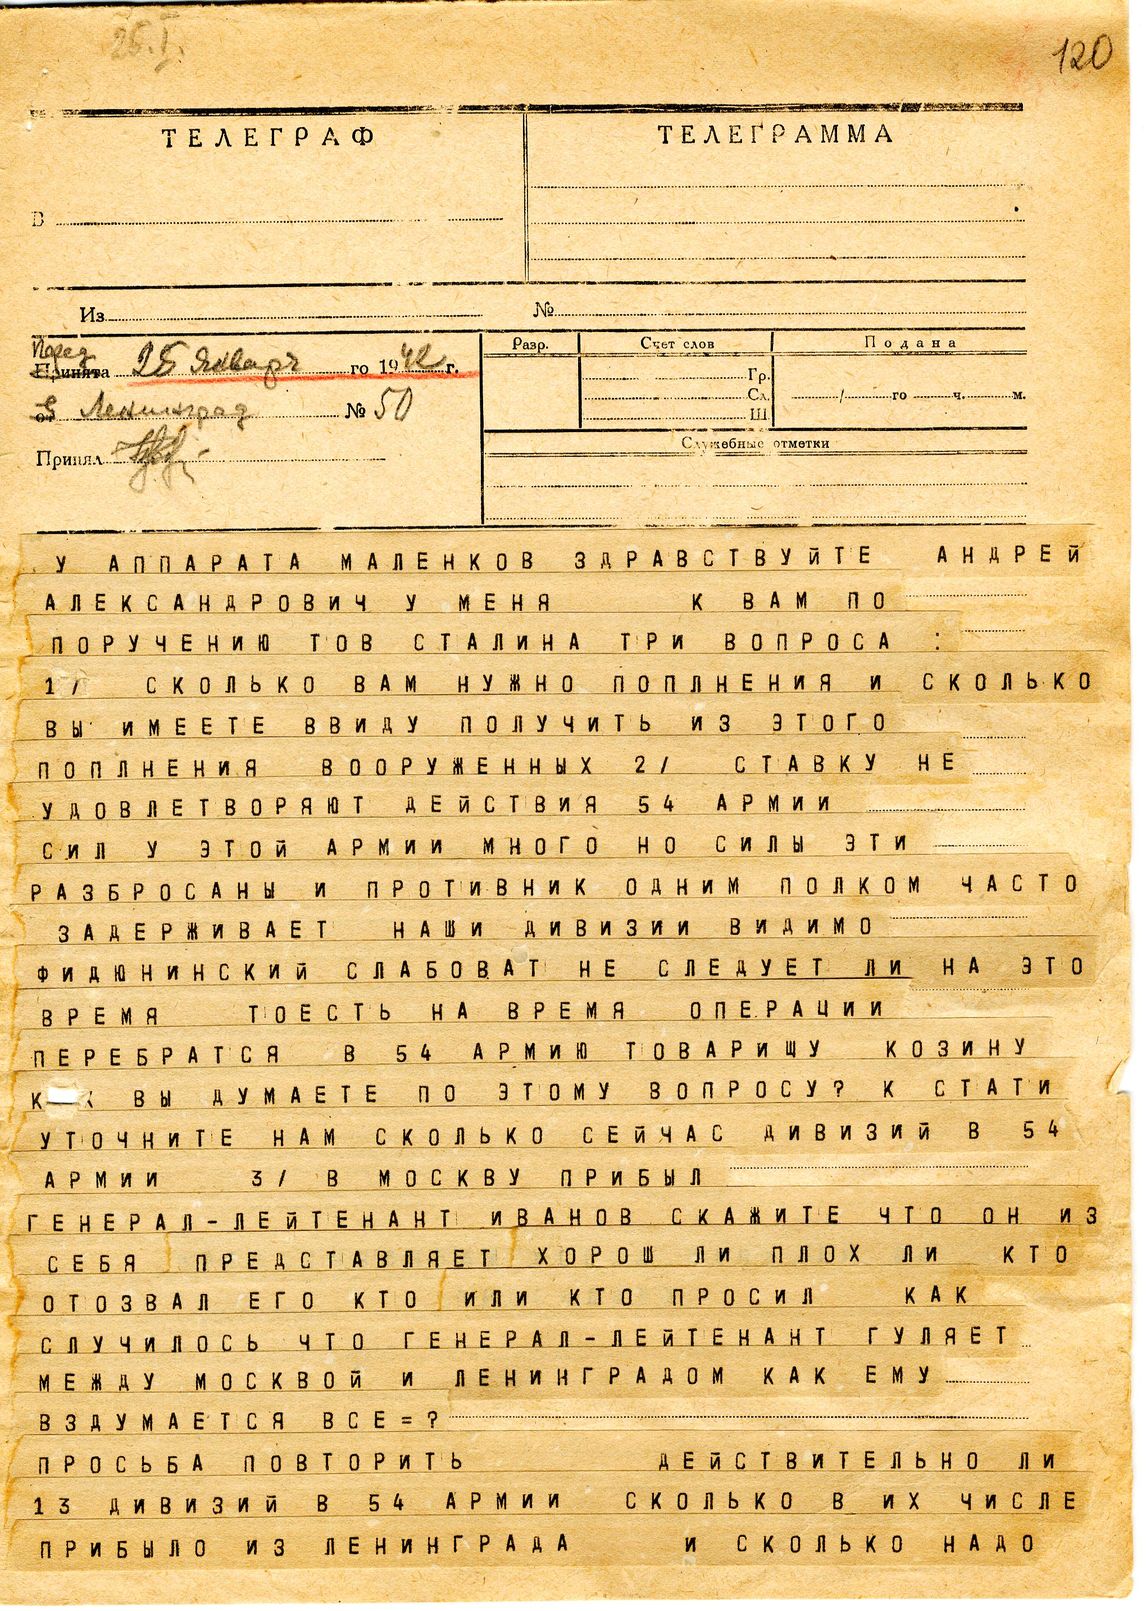 25.I.
120
ТЕЛЕГРАФ
ТЕЛЕГРАММА
В
Из
№
Перед
Принята 25 Январ го 1942 г.
Разр.
Счет слов
Подана
Гр.
Сл.
Ш
/ го ч. м.
в Ленинград № 50
Служебные отметки
Принял
У АППАРАТА МАЛЕНКОВ ЗДРАВСТВУЙТЕ АНДРЕЙ
АЛЕКСАНДРОВИЧ У МЕНЯ К ВАМ ПО
ПОРУЧЕНИЮ ТОВ СТАЛИНА ТРИ ВОПРОСА :
1/ СКОЛЬКО ВАМ НУЖНО ПОПЛНЕНИЯ И СКОЛЬКО
ВЫ ИМЕЕТЕ ВВИДУ ПОЛУЧИТЬ ИЗ ЭТОГО
ПОПЛНЕНИЯ ВООРУЖЕННЫХ 2/ СТАВКУ НЕ
УДОВЛЕТВОРЯЮТ ДЕЙСТВИЯ 54 АРМИИ
СИЛ У ЭТОЙ АРМИИ МНОГО НО СИЛЫ ЭТИ
РАЗБРОСАНЫ И ПРОТИВНИК ОДНИМ ПОЛКОМ ЧАСТО
ЗАДЕРЖИВАЕТ НАШИ ДИВИЗИИ ВИДИМО
ФИДЮНИНСКИЙ СЛАБОВАТ НЕ СЛЕДУЕТ ЛИ НА ЭТО
ВРЕМЯ ТОЕСТЬ НА ВРЕМЯ ОПЕРАЦИИ
ПЕРЕБРАТСЯ В 54 АРМИЮ ТОВАРИЩУ КОЗИНУ
КАК ВЫ ДУМАЕТЕ ПО ЭТОМУ ВОПРОСУ? К СТАТИ
УТОЧНИТЕ НАМ СКОЛЬКО СЕЙЧАС ДИВИЗИЙ В 54
АРМИИ 3/ В МОСКВУ ПРИБЫЛ
ГЕНЕРАЛ-ЛЕЙТЕНАНТ ИВАНОВ СКАЖИТЕ ЧТО ОН ИЗ
СЕБЯ ПРЕДСТАВЛЯЕТ ХОРОШ ЛИ ПЛОХ ЛИ КТО
ОТОЗВАЛ ЕГО КТО ИЛИ КТО ПРОСИЛ КАК
СЛУЧИЛОСЬ ЧТО ГЕНЕРАЛ-ЛЕЙТЕНАНТ ГУЛЯЕТ
МЕЖДУ МОСКВОЙ И ЛЕНИНГРАДОМ КАК ЕМУ
ВЗДУМАЕТСЯ ВСЕ=?
ПРОСЬБА ПОВТОРИТЬ ДЕЙСТВИТЕЛЬНО ЛИ
13 ДИВИЗИЙ В 54 АРМИИ СКОЛЬКО В ИХ ЧИСЛЕ
ПРИБЫЛО ИЗ ЛЕНИНГРАДА И СКОЛЬКО НАДО